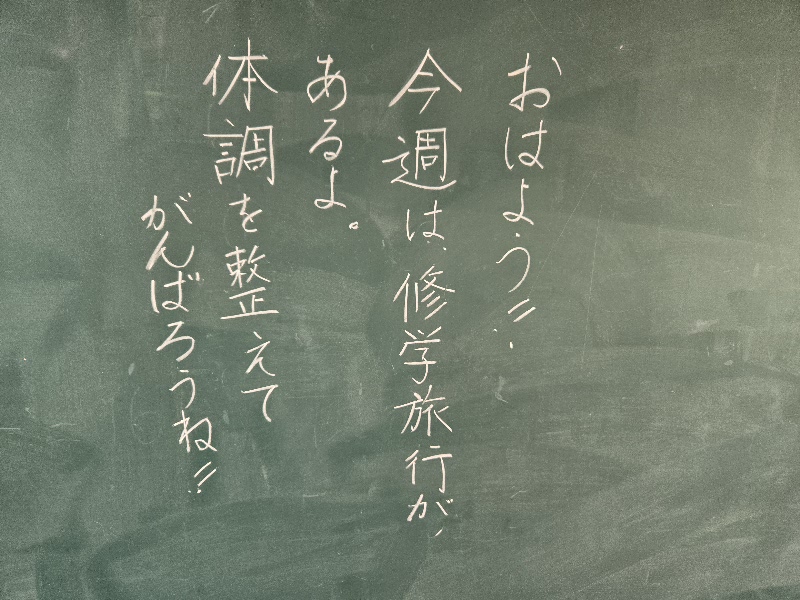 おはよう!!
今週は、修学旅行が、
あるよ。
体調を整えて
がんばろうね!!